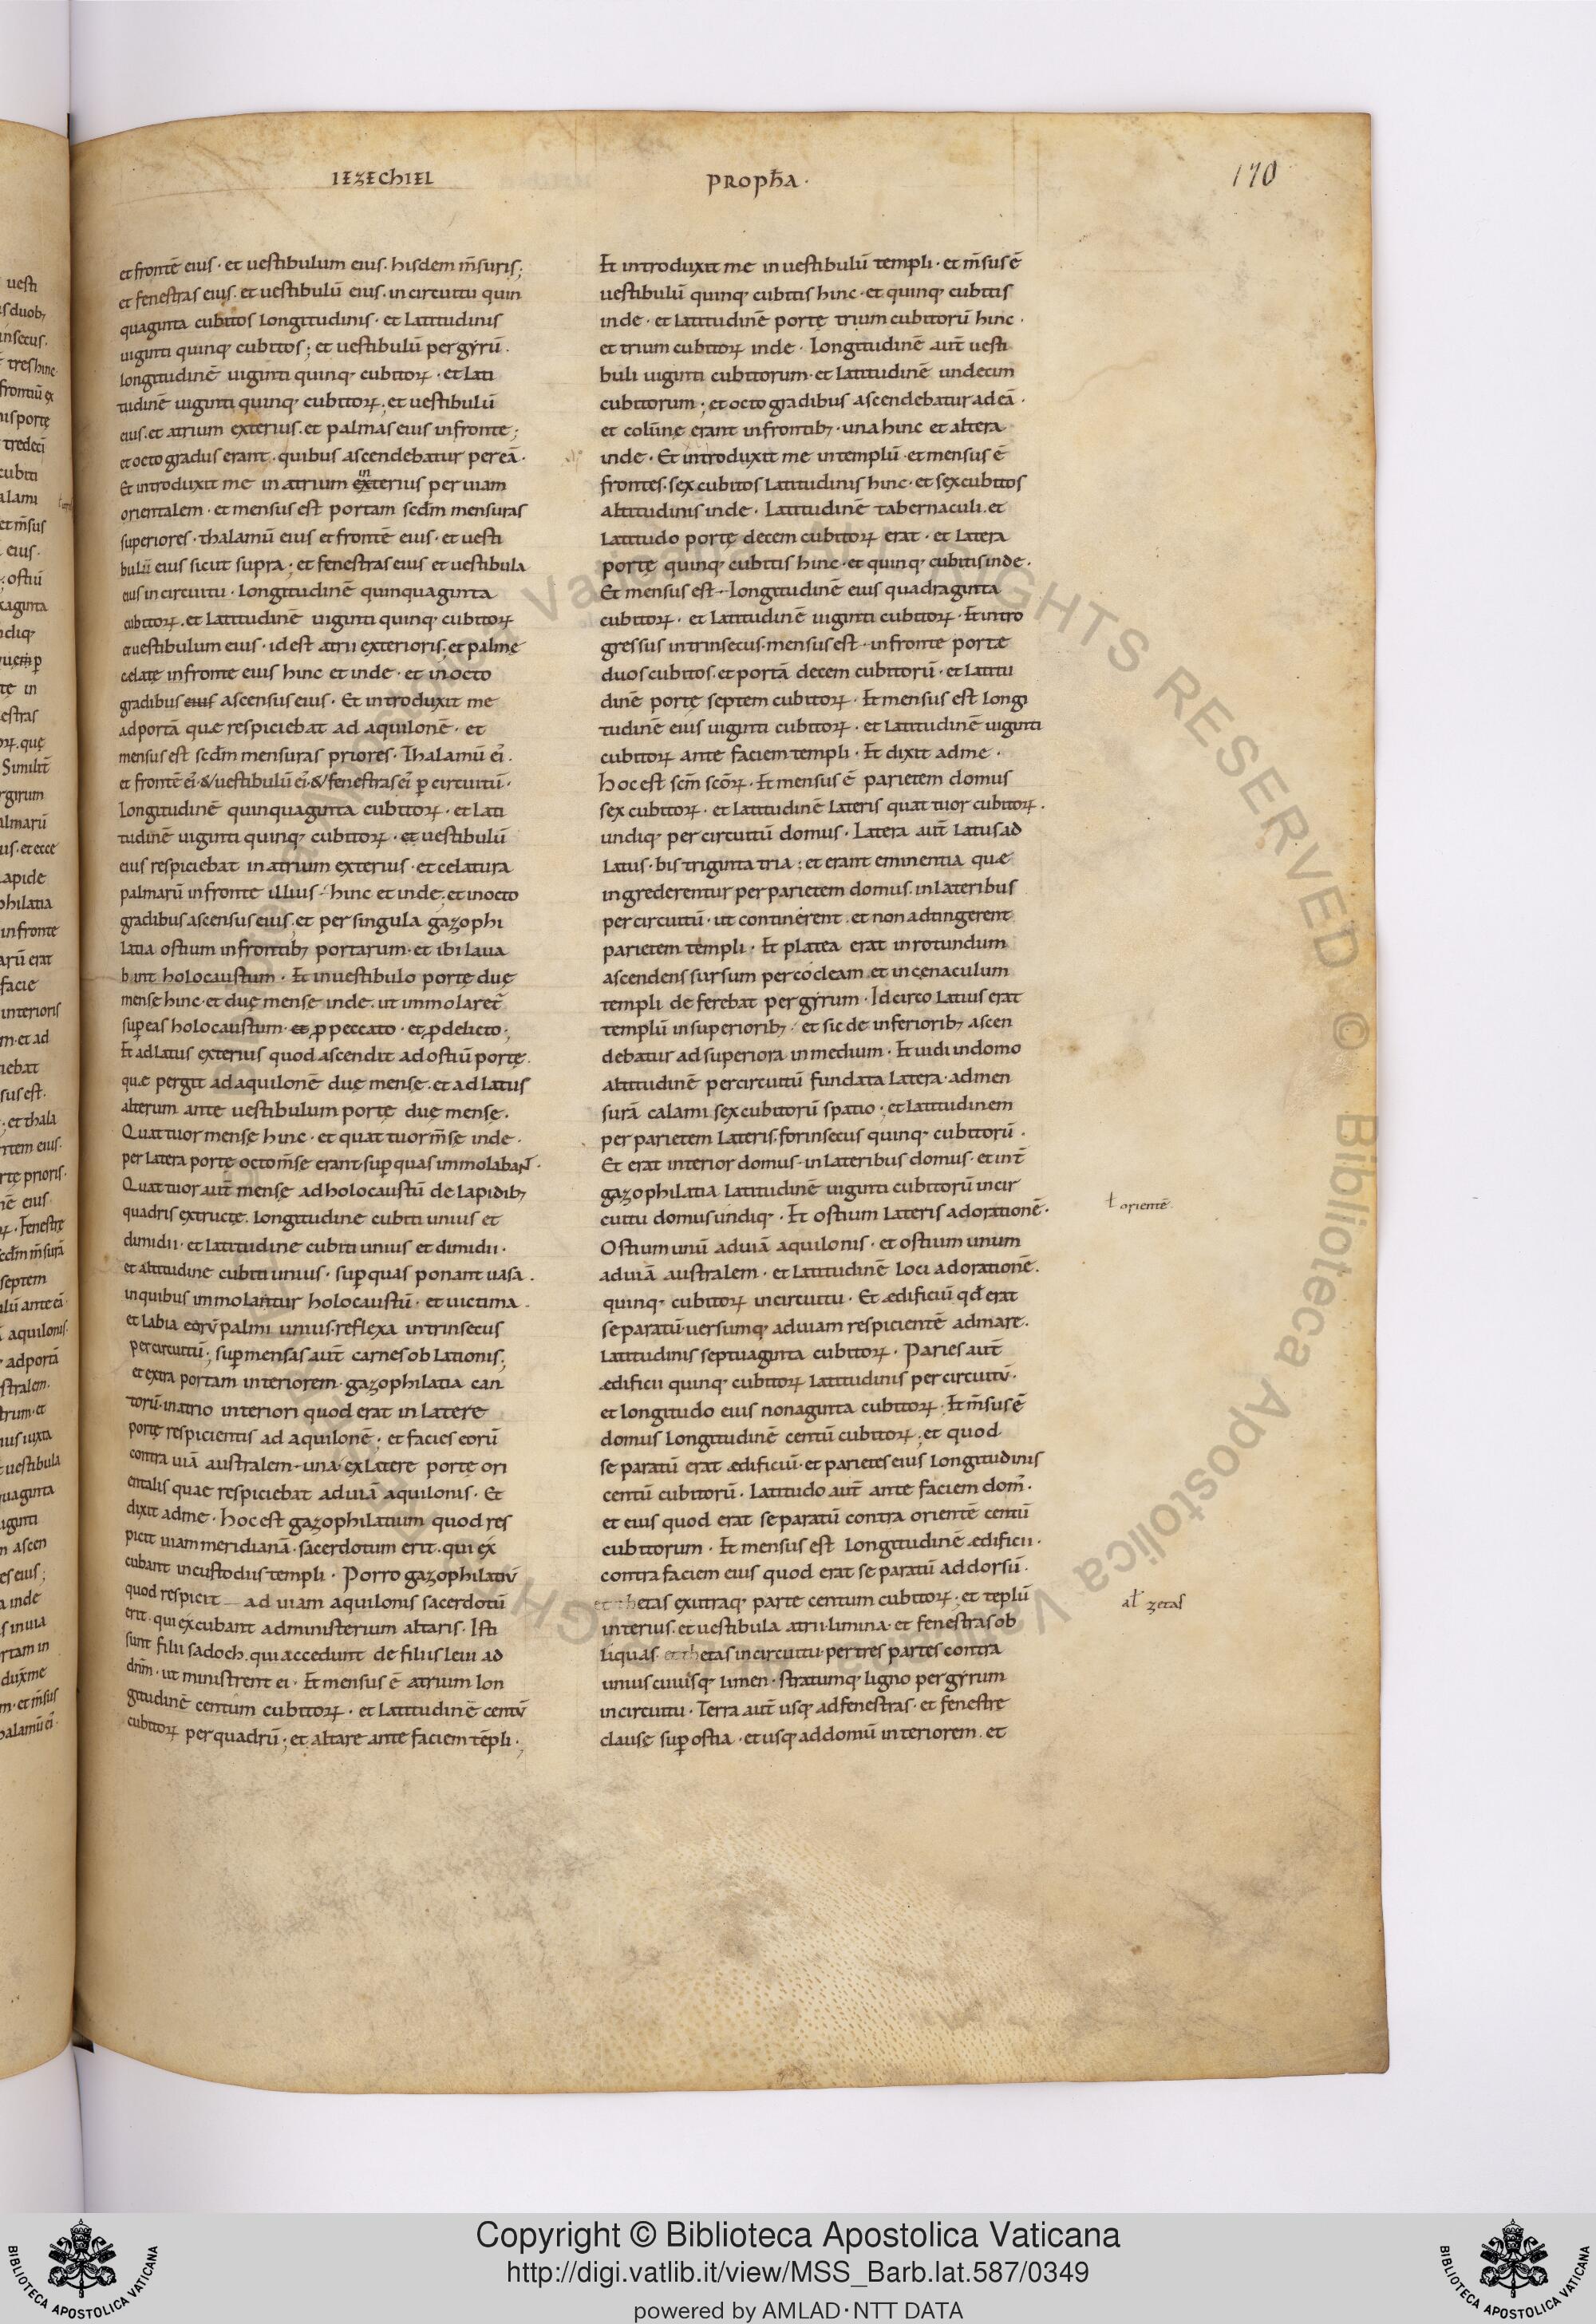 IEZECHIEL
PROPH̄A·
170
et frontē eius · et uestibulum eius · hisdem m̄suris;
et fenestras eius · et uestibulū eius · in circuitu quin
quaginta cubitos longitudinis · et latitudinis
uiginti quinq; cubitos ; et uestibulū per gyrū ·
longitudinē uiginti quinq; cubitoꝝ · et lati
tudinē uiginti quinq; cubitoꝝ ; et uestibulū
eius · et atrium exterius · et palmas eius in fronte ;
et octo gradus erant · quibus ascendebatur per eā ·
in
Et introduxit me in atrium exterius per uiam
orientalem · et mensus est portam scdm̄ mensuras
superiores · thalamū eius et frontē eius · et uesti
bulū eius sicut supra ; et fenestras eius et uestibula
eius in circuitu · longitudinē quinquaginta
cubitoꝝ · et latitudinē uiginti quinq; cubitoꝝ
et uestibulum eius · id est atrii exterioris · et palmę
celatę in fronte eius hinc et inde · et in octo
gradibus eius ascensus eius · Et introduxit me
ad portā quae respiciebat ad aquilonē · et
mensus est scdm̄ mensuras priores · Thalamū ei' ·
et frontē ei' · & uestibulū ei' · & fenestras ei' ꝑ circuitū ·
longitudinē quinquaginta cubitoꝝ · et lati
tudinē uiginti quinq; cubitoꝝ · et uestibulū
eius respiciebat in atrium exterius · et celatura
palmarū in fronte illius hinc et inde ; et in octo
gradibus ascensus eius · et per singula gazophi
latia ostium in frontib; portarum · et ibi laua
bant holocaustum · Et in uestibulo portę duę
mensę hinc · et duę mensę inde · ut immolaret̄
suꝑ eas holocaustum · et ꝓ peccato · et ꝓ delicto ;
Et ad latus exterius quod ascendit ad ostiū portę ·
quae pergit ad aquilonē duę mensę · et ad latus
alterum ante uestibulum portę duę mensę ·
Quattuor mensę hinc · et quattuor m̄sę inde ·
per latera portę octo m̄sę erant · suꝑ quas immolabant ·
Quattuor aut̄ mensę ad holocaustū de lapidib;
quadris extructę · longitudine cubiti unius et
dimidii · et latitudine cubiti unius et dimidii ·
et altitudine cubiti unius · suꝑ quas ponant uasa ·
in quibus immolantur holocaustū · et uictima ·
et labia eorū palmi unius · reflexa intrinsecus
per circuitū ; suꝑ mensas aut̄ carnes oblationis ;
et extra portam interiorem · gazophilatia can
torū · in atrio interiori quod erat in latere
portę respicientis ad aquilonē ; et facies eorū
contra uiā australem · una ex latere portę ori
entalis quae respiciebat ad uiā aquilonis · Et
dixit ad me · hoc est gazophilatium quod res
picit uiam meridianā · sacerdotum erit · qui ex
cubant in custodiis templi · Porro gazophilatiū
quod respicit ad uiam aquilonis sacerdotū
erit · qui excubant ad ministerium altaris · Isti
sunt filii sadoch · qui accedunt de filiis leui ad
dn̄m · ut ministrent ei · Et mensus ē atrium lon
gitudinē centum cubitoꝝ · et latitudinē centū
cubitoꝝ per quadrū ; et altare ante faciem tēpli ·
Et introduxit me in uestibulū templi · et m̄sus ē
uestibulū quinq; cubitis hinc · et quinq; cubitis
inde · et latitudinē portę trium cubitorū hinc ·
et trium cubitoꝝ inde · longitudinē aut̄ uesti
buli uiginti cubitorum · et latitudinē undecim
cubitorum ; et octo gradibus ascendebatur ad eā ·
et colūnę erant in frontib; · una hinc et altera
inde · Et introduxit me in templū · et mensus ē
frontes · sex cubitos latitudinis hinc · et sex cubitos
altitudinis inde · latitudinē tabernaculi · et
latitudo portę decem cubitoꝝ erat · et latera
portę quinq; cubitis hinc · et quinq; cubitis inde ·
Et mensus est longitudinē eius quadraginta
cubitoꝝ · et latitudinē uiginti cubitoꝝ · Et intro
gressus intrinsecus · mensus est · in fronte portę
duos cubitos · et portā decem cubitorū · et latitu
dinē portę septem cubitoꝝ · Et mensus est longi
tudinē eius uiginti cubitoꝝ · et latitudinē uiginti
cubitoꝝ ante faciem templi · Et dixit ad me ·
hoc est scm̄ scōꝝ · Et mensus ē parietem domus
sex cubitoꝝ · et latitudinē lateris quattuor cubitoꝝ ·
undiq; per circuitū domus · Latera aut̄ latus ad
latus · bis triginta tria ; et erant eminentia quae
ingrederentur per parietem domus · in lateribus
per circuitū · ut continerent · et non adtingerent
parietem templi · Et platea erat in rotundum
ascendens sursum per cocleam · et in cenaculum
templi deferebat per gyrum · Idcirco latius erat
templū in superiorib; · et sic de inferiorib; ascen
debatur ad superiora in medium · Et uidi in domo
altitudinē per circuitū fundata latera · ad men
surā calami sex cubitorū spatio ; et latitudinem
per parietem lateris · forinsecus quinq; cubitorū ·
Et erat interior domus · in lateribus domus · et int̄
gazophilatia latitudinē uiginti cubitorū in cir
cuitu domus undiq; · Et ostium lateris ad orationē ·
Ostium unū ad uiā aquilonis · et ostium unum
ad uiā australem · et latitudinē loci ad orationē ·
quinq; cubitoꝝ in circuitu · Et aedificiū qd̄ erat
separatū · uersumq; ad uiam respicientē ad mare ·
latitudinis septuaginta cubitoꝝ · Paries aut̄
aedificii quinq; cubitoꝝ latitudinis per circuitū ·
et longitudo eius nonaginta cubitoꝝ · Et m̄sus ē
domus longitudinē centū cubitoꝝ ; et quod
separatū erat aedificiū · et parietes eius longitudinis
centū cubitorū · latitudo aut̄ ante faciem dom' ·
et eius quod erat separatū contra orientē centū
cubitorum · Et mensus est longitudinē aedificii ·
contra faciem eius quod erat separatū ad dorsū ·
et thetas ex utraq; parte centum cubitoꝝ ; et tēplū
interius · et uestibula atrii · limina · et fenestras ob
liquas · et thetas in circuitu · per tres partes contra
unius cuiusq; limen · stratumq; ligno per gyrum
in circuitu · Terra aut̄ usq; ad fenestras · et fenestrę
clausę suꝑ ostia · et usq; ad domū interiorem · et
ł orientē
al' zetas
Copyright © Biblioteca Apostolica Vaticana
http://digi.vatlib.it/view/MSS_Barb.lat.587/0349
powered by AMLAD·NTT DATA